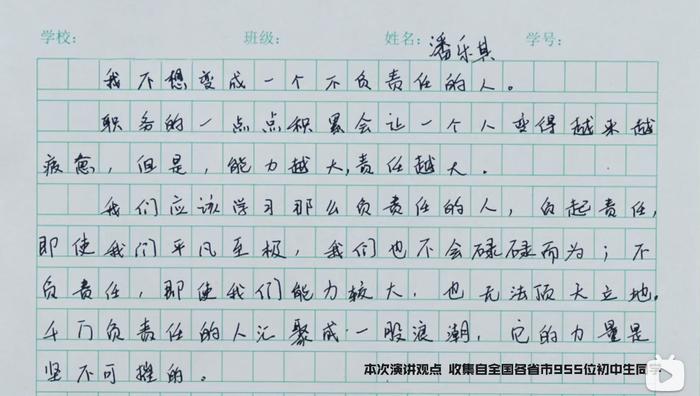 学校： 班级： 姓名：潘乐其 学号：
我不想变成一个不负责任的人。
职务的一点点积累会让一个人变得越来越
疲惫，但是，能力越大，责任越大。
我们应该学习那么负责任的人，负起责任，
即使我们平凡至极，我们也不会碌碌而为；不
负责任，即使我们能力较大，也无法顶天立地。
千万负责任的人汇聚成一股浪潮，它的力量是
坚不可摧的。
本次演讲观点 收集自全国各省市955位初中生同学